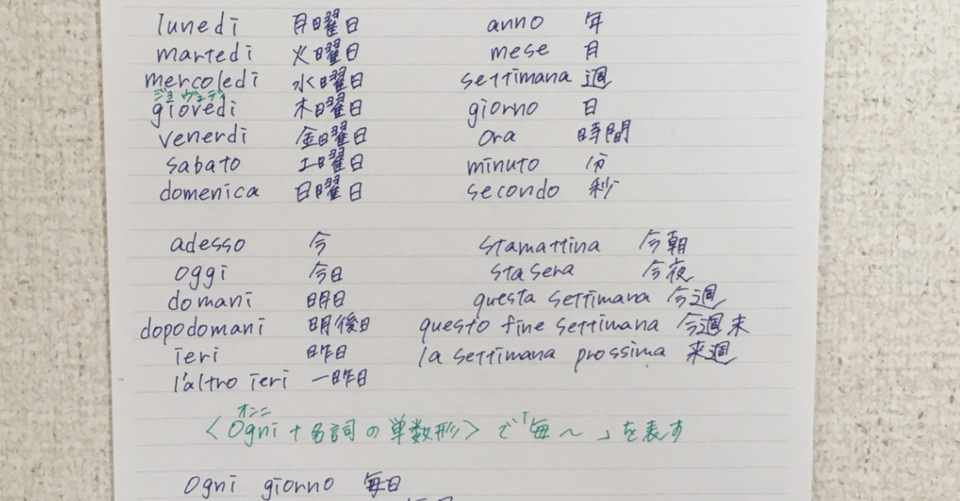 lunedì 月曜日 anno 年
martedì 火曜日 mese 月
mercoledì 水曜日 settimana 週
ジョヴェディ
giovedì 木曜日 giorno 日
venerdì 金曜日 ora 時間
sabato 土曜日 minuto 分
domenica 日曜日 secondo 秒
adesso 今 stamattina 今朝
oggi 今日 stasera 今夜
domani 明日 questa settimana 今週
dopodomani 明後日 questo fine settimana 今週末
ieri 昨日 la settimana prossima 来週
l'altro ieri 一昨日
オンニ
<Ogni + 名詞の単数形> で「毎〜」を表す
Ogni giorno 毎日